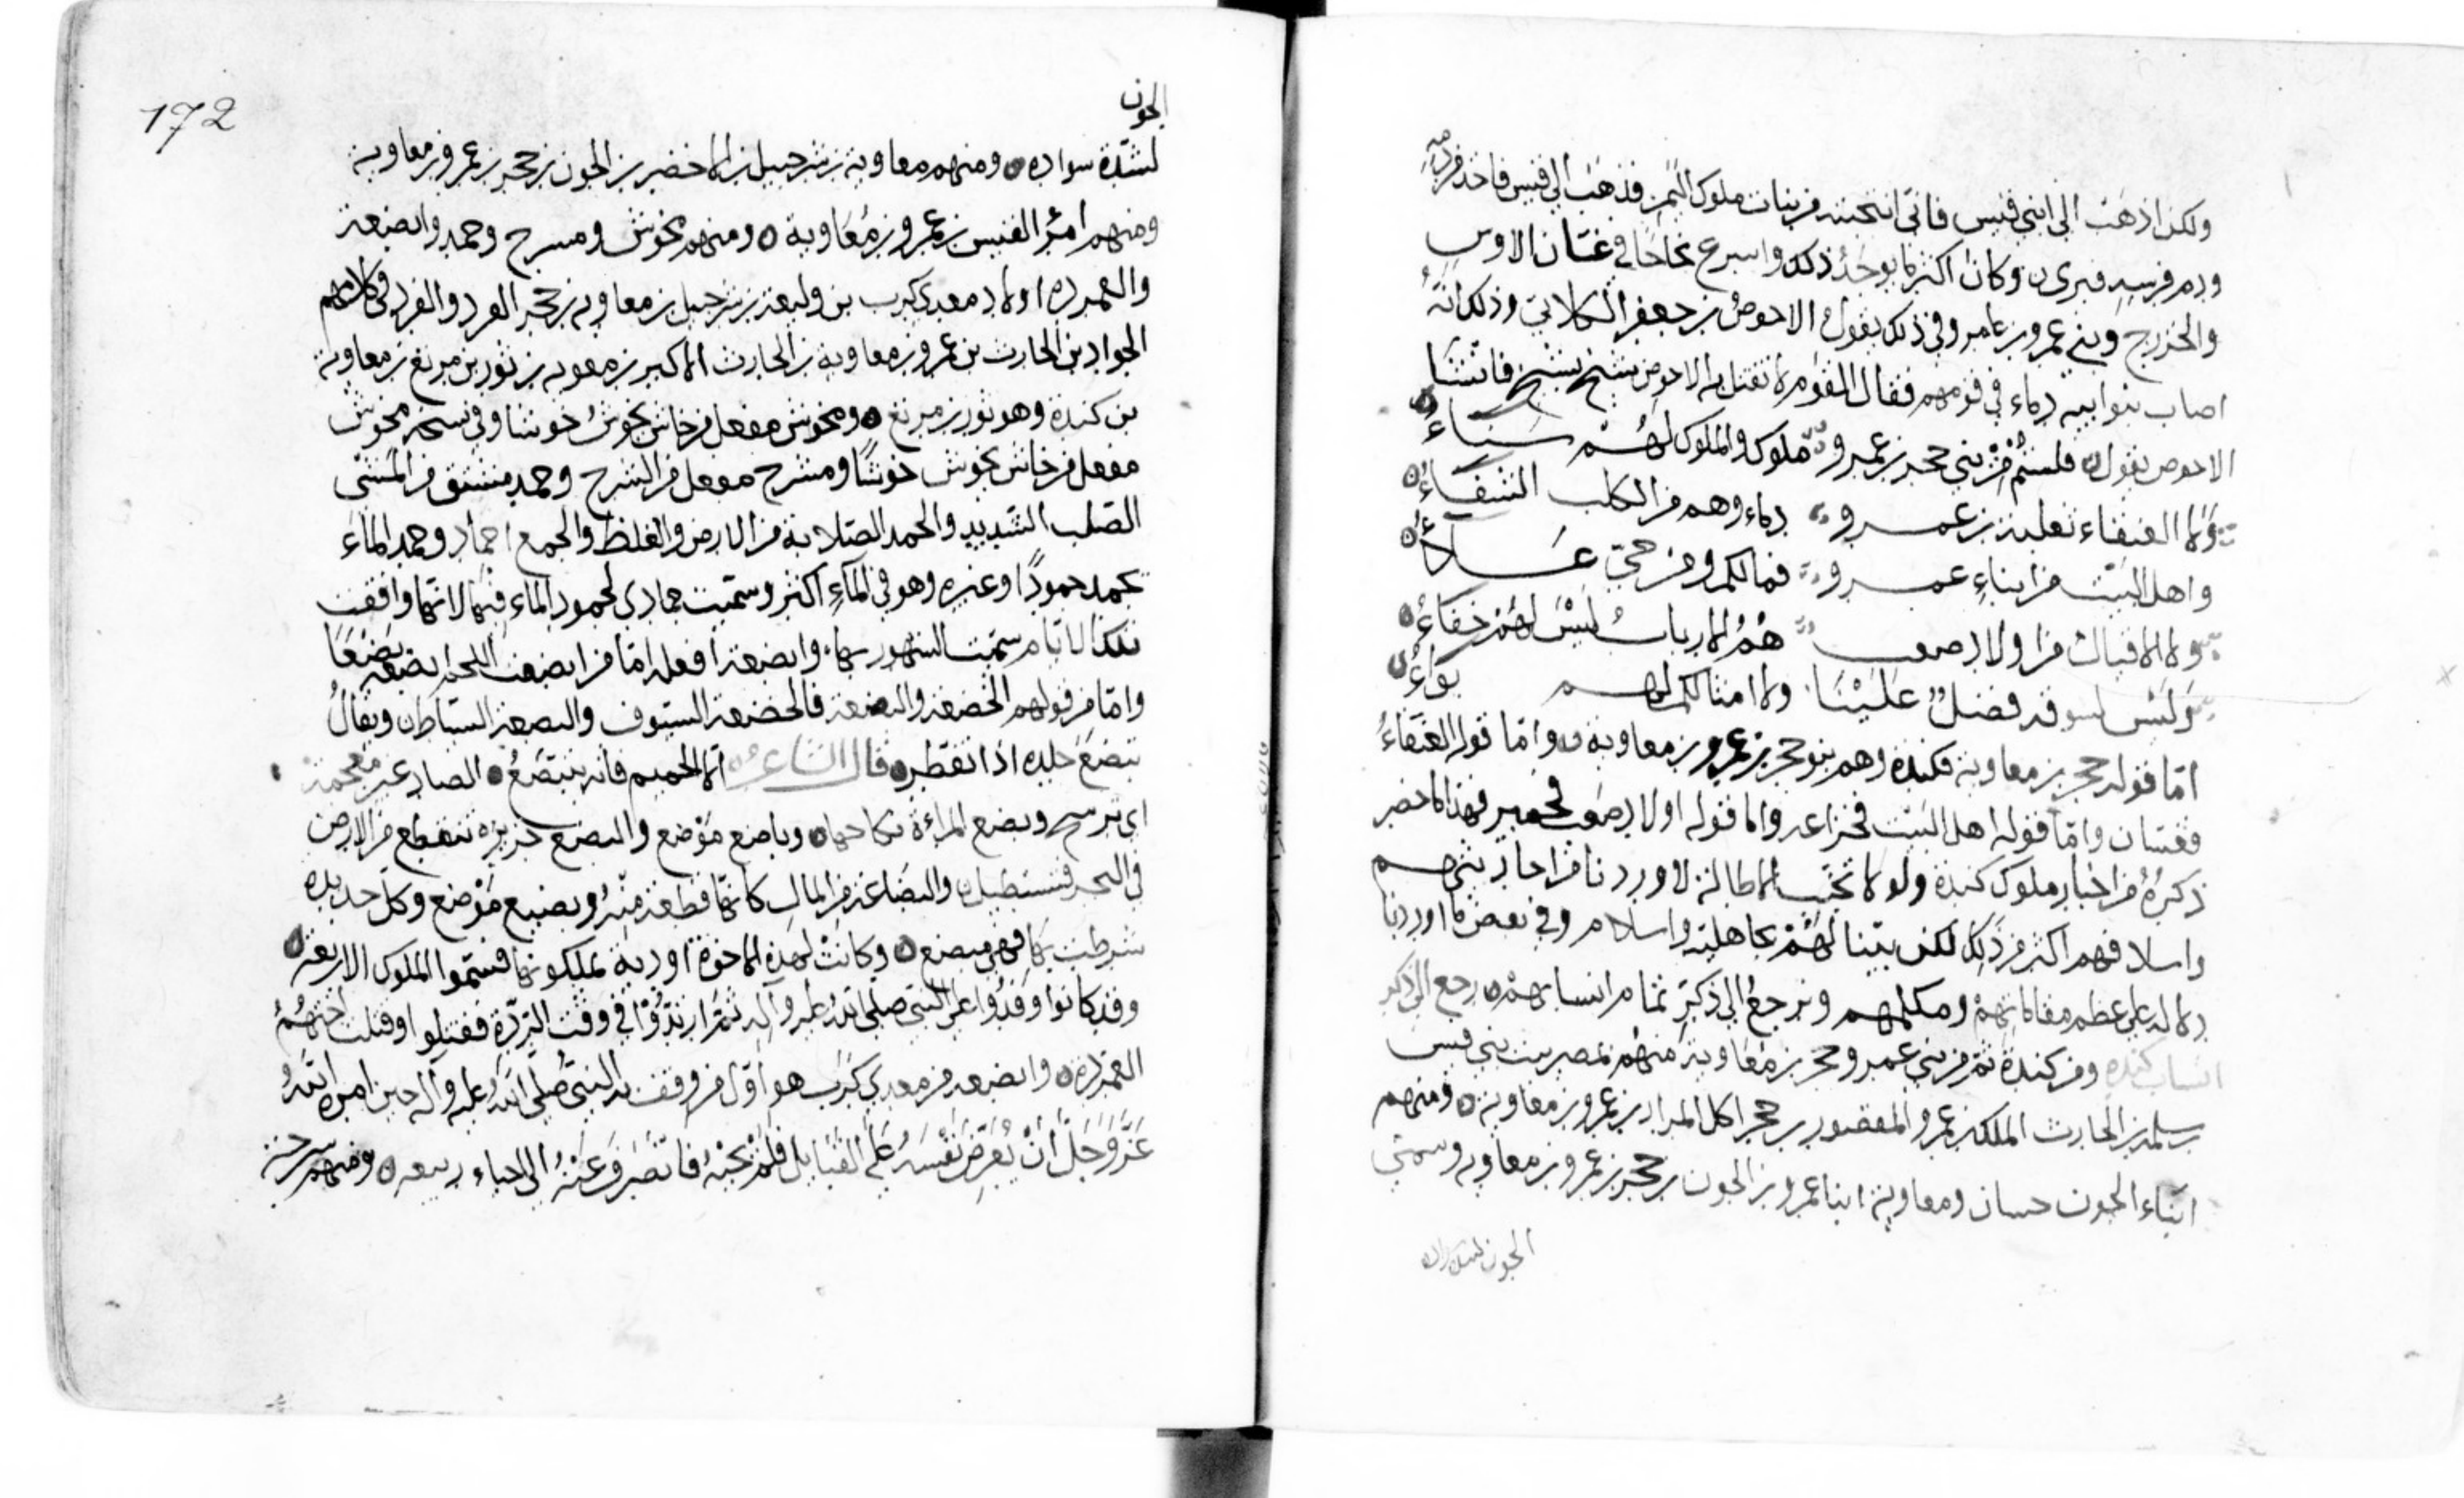 ولكن اذهب الى ابني قيس فاني انتجبته من بنات ملوك اليمن فذهب الى قيس فاخذ من دمه
ودم فرسه فبرى وكان اكثر ما يوجد ذلك واسرع نجاحا في غسان الاوس
والخزرج وبني عمرو بن عامر وفي ذلك يقول الاحوص بن جعفر الكلابي وذلك انه
اصاب بنوا ابيه دماء في قومهم فقال القوم لا نقتل الاحوص شيخ بشيخ فانشا
الاحوص يقول فلستم من بني حجر بن عمرو ملوك والملوك لهم سناء
ولا العنقاء ثعلبة بن عمرو دماء وهم من الكلب الشفاء
واهل البيت من ابناء عمرو فما لكم ومن حي علاء
ولا الاقيال من اولاد صعب هم الارباب ليس لهم خفاء
وليس لسوقة فضل علينا ولا امثالكم لهم بواء
اما قوله حجر بن معاوية فكندة وهم بنو حجر بن عمرو بن معاوية واما قوله العنقاء
فغسان واما قوله اهل البيت فخزاعه واما قوله اولاد صعب فحمير فهذا ما حضر
ذكره من اخبار ملوك كندة ولولا تجنب الاطالة لاوردنا من احاديثهم
واسلافهم اكثر من ذلك لكن بينا لهم بجاهلية واسلام وفي بعض ما اوردنا
دلالة على عظم مقاماتهم ومكانهم ونرجع الى ذكر تمام انسابهم رجع الى ذكر
انساب كندة ومن كندة ثم من بني عمرو وحجر بن معاوية منهم بنى قيس
بن سلمة بن الحارث الملك بن عمرو المقصور بن حجر اكل المرار بن عمرو بن معاوية ومنهم
ابناء الجون حسان ومعاوية ابنا عمرو بن الجون بن حجر بن عمرو بن معاوية وسمي
الجون لشدة
172
الجون
لشدة سواده ومنهم معاوية بن شرحبيل بن الاخضر بن الجون بن حجر بن عمرو بن معاوية
ومنهم امرؤ القيس بن عمرو بن معاوية ومنهم مخوش ومسرح وجمد وابضعة
والعمردة اولاد معدي كرب بن وليعة بن شرحبيل بن معاوية بن حجر الفرد والفرد في كلامهم
الجواد بن الحارث بن عمرو بن معاوية بن الحارث الاكبر بن معوية بن ثور بن مرتع بن معاوية
بن كندة وهو ثور بن مرتع ومخوش مفعل من خاش يخوش خوشا وفي نسخة مخوش
مفعل من خاش يخوش خوشا ومشرح مفعل من الشرح وجمد مشتق من المشي
الصلب الشديد والجمد الصلابة من الارض والغلظ والجمع اجماد وجمد الماء
يجمد جمودا وغيره وهو في الماء اكثر وسميت جمادى لجمود الماء فيها لانها وافقت
تلك الايام سميت الشهور بها وابضعة افعلة اما من ابضعت اللحم ابضعه بضعا
واما من قولهم الخضعة والبضعة فالخضعة السيوف والبضعة السياط ويقال
تبضع جلده اذا تفطر قال الشاعر الا الحميم فانه يتبضع الصاد غير معجمة
اي ترشح وبضع المراءة نكاحها وباضع موضع والبضع جزيرة تنقطع من الارض
في البحر فتستطيل والبضاعة من المال كانها قطعة منه وبضيع موضع وكل حديدة
شرطت بها فهي مبضع وكانت لهذه الاخوة اودية يملكونها فسموا الملوك الاربعة
وقد كانوا وفدوا على النبي صلى الله عليه واله ثم ارتدوا في وقت الردة فقتلوا وقتلت اختهم
العمردة وابضعه من معدي كرب هو اول من وقف به النبي صلى الله عليه واله حين امره الله
عز وجل ان يعرض نفسه على القبايل فلم يجبه فانصرف عنه الى احياء ربيعه ومنهم